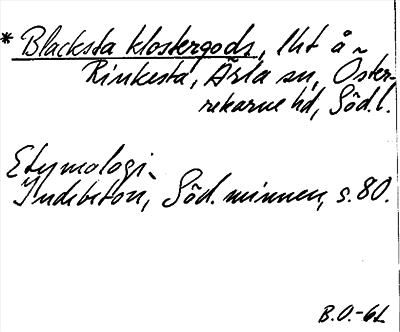 * Blacksta klostergods, lht å
Rinkesta, Ärla sn, Öster-
rekarne hd, Södl.
Etymologi.
Indebetou, Söd. minnen, s. 80.
B.O.-62